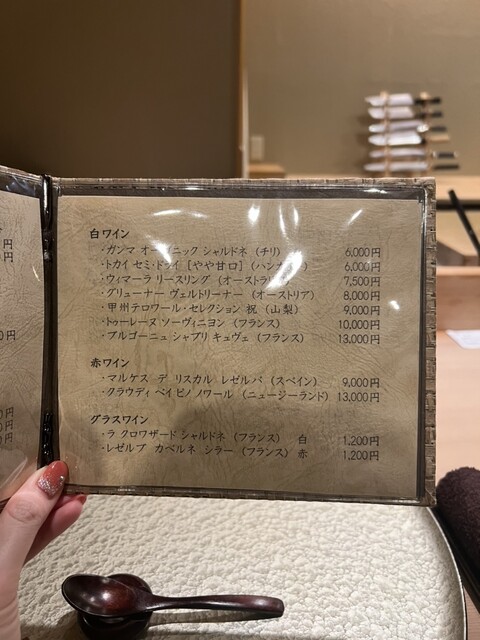 白ワイン
・ガンマ オーガニック シャルドネ（チリ） 6,000円
・トカイ セミ・ドライ［やや甘口］（ハンガリー） 6,000円
・ウィマーラ リースリング（オーストラリア） 7,500円
・グリューナー ヴェルトリーナー（オーストリア） 8,000円
・甲州テロワール・セレクション 祝（山梨） 9,000円
・トゥーレーヌ ソーヴィニヨン（フランス） 10,000円
・ブルゴーニュ シャブリ キュヴェ（フランス） 13,000円
赤ワイン
・マルケス デ リスカル レゼルバ（スペイン） 9,000円
・クラウディ ベイ ピノ ノワール（ニュージーランド） 13,000円
グラスワイン
・ラ クロワザード シャルドネ（フランス） 白 1,200円
・レゼルブ カベルネ シラー（フランス） 赤 1,200円